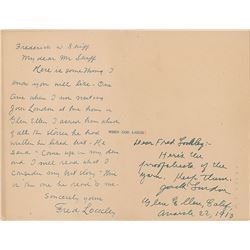 Frederick W. Skiff
My dear Mr. Skiff
Here is something I
know you will like - One
time when I was visiting
Jack London at his home in
Glen Ellen I asked him which
of all the stories he had
written he liked best. He
said "Come up in my den
and I will read what I
consider my best story." This
is the one he read to me.
Sincerely yours
Fred Lockley
WHEN GOD LAUGHS
Dear Fred Lockley:
Here's the
proofsheets of the
yarn. Keep them.
Jack London
Glen Ellen, Calif.
August 22, 1913